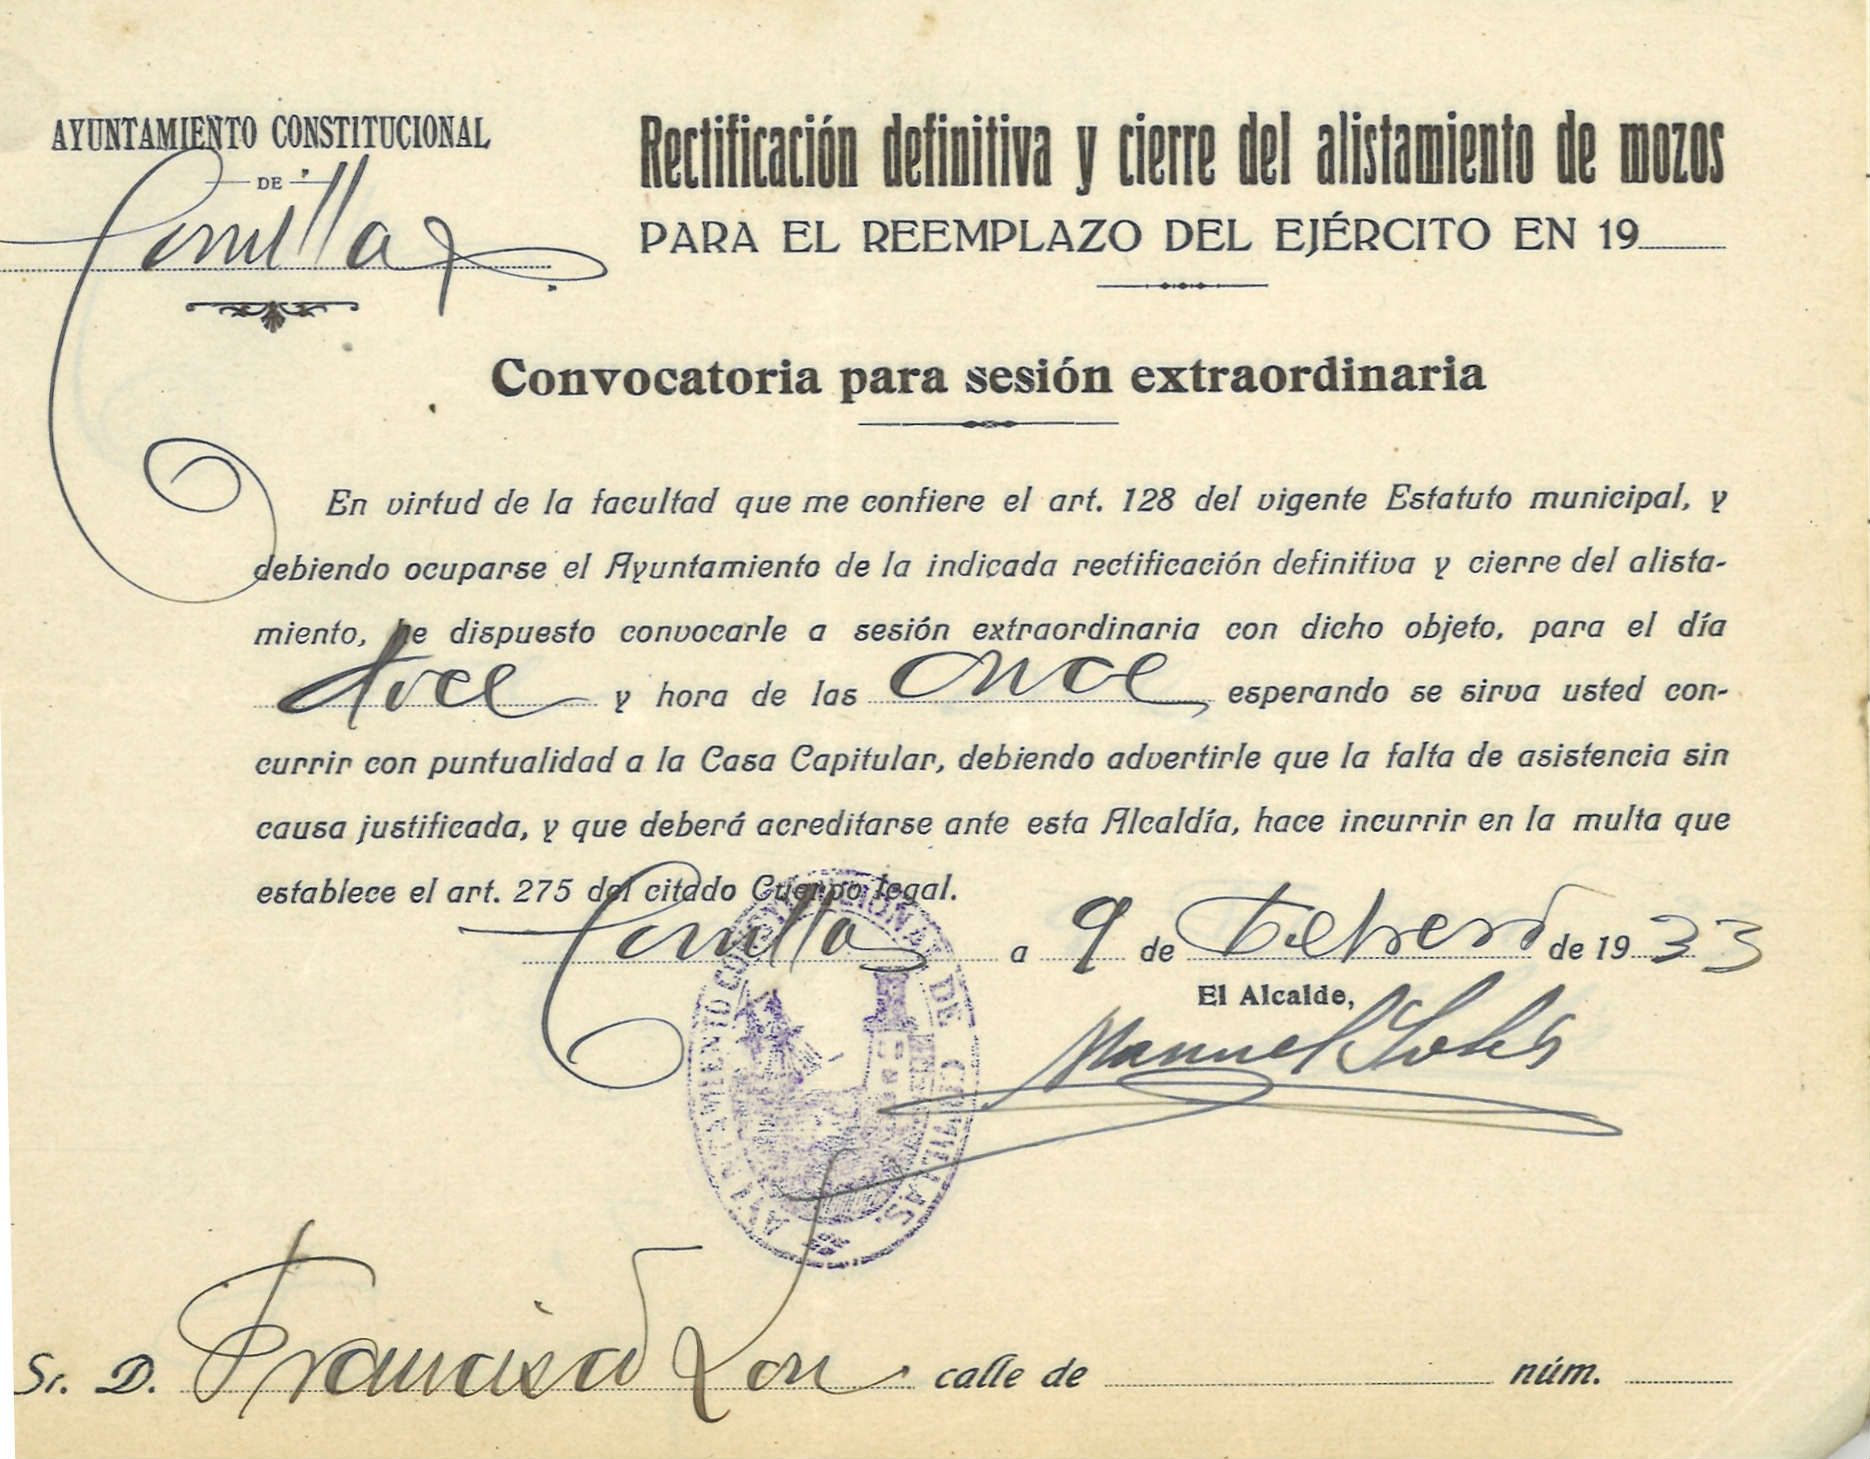 AYUNTAMIENTO CONSTITUCIONAL
DE
Rectificación definitiva y cierre del alistamiento de mozos
PARA EL REEMPLAZO DEL EJÉRCITO EN 19
Convocatoria para sesión extraordinaria
En virtud de la facultad que me confiere el art. 128 del vigente Estatuto municipal, y
debiendo ocuparse el Ayuntamiento de la indicada rectificación definitiva y cierre del alista-
miento, he dispuesto convocarle a sesión extraordinaria con dicho objeto, para el día
doce y hora de las once esperando se sirva usted con-
currir con puntualidad a la Casa Capitular, debiendo advertirle que la falta de asistencia sin
causa justificada, y que deberá acreditarse ante esta Alcaldía, hace incurrir en la multa que
establece el art. 275 del citado Cuerpo legal.
a 9 de Febrero de 1933
El Alcalde,
Manuel
AYUNTAMIENTO CONSTITUCIONAL DE
Sr. D. Francisco calle de núm.